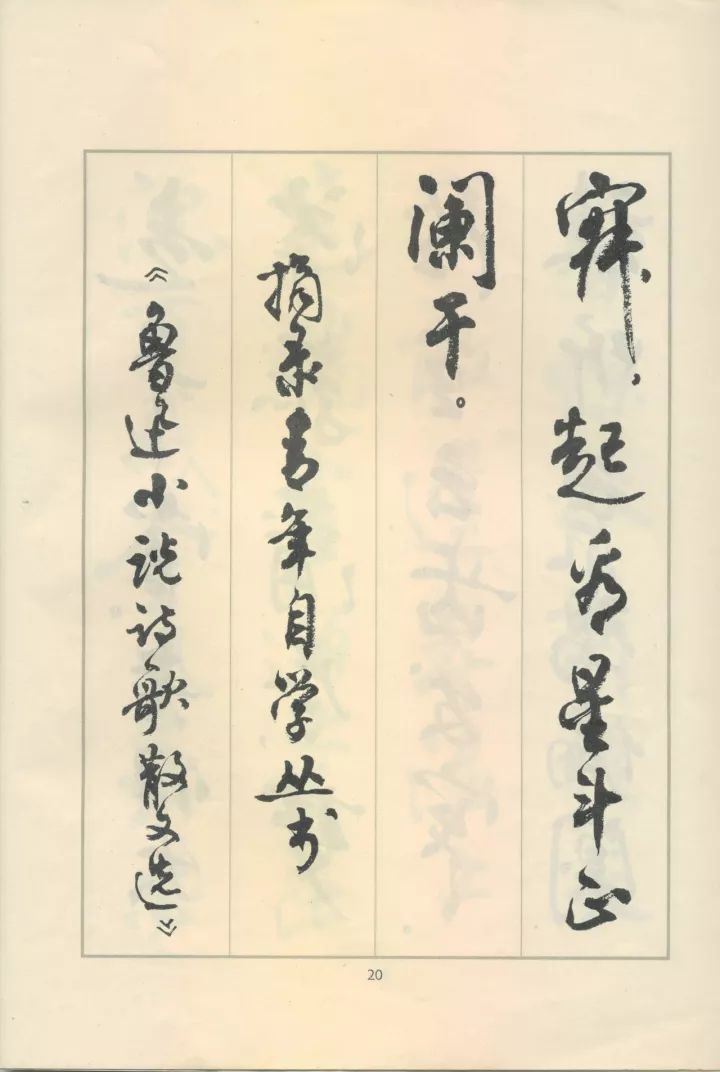 寂，起看星斗正
阑干。
摘录青年自学丛书
《鲁迅小说诗歌散文选》
20